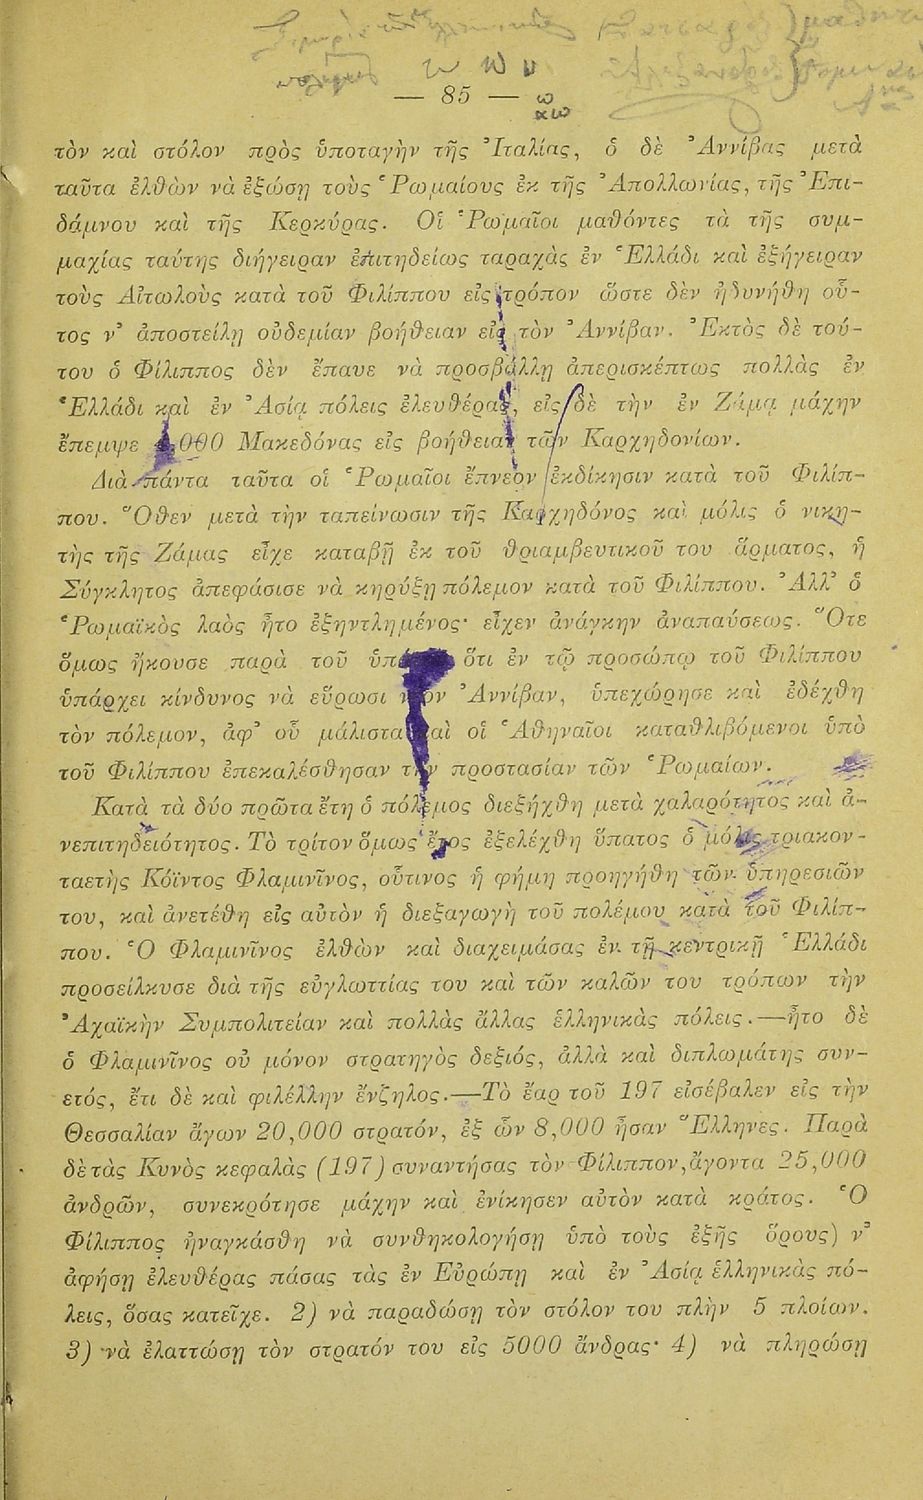 — 85 —
τὸν καὶ στόλον πρὸς ὑποταγὴν τῆς Ἰταλίας, ὁ δὲ Ἀννίβας μετὰ
ταῦτα ἐλθὼν νὰ ἐξώσῃ τοὺς Ῥωμαίους ἐκ τῆς Ἀπολλωνίας, τῆς Ἐπι-
δάμνου καὶ τῆς Κερκύρας. Οἱ Ῥωμαῖοι μαθόντες τὰ τῆς συμ-
μαχίας ταύτης διήγειραν ἐπιτηδείως ταραχὰς ἐν Ἑλλάδι καὶ ἐξήγειραν
τοὺς Αἰτωλοὺς κατὰ τοῦ Φιλίππου εἰς τρόπον ὥστε δὲν ἠδυνήθη οὗ-
τος ν' ἀποστείλῃ οὐδεμίαν βοήθειαν εἰς τὸν Ἀννίβαν. Ἐκτὸς δὲ τού-
του ὁ Φίλιππος δὲν ἔπαυε νὰ προσβάλλῃ ἀπερισκέπτως πολλὰς ἐν
Ἑλλάδι καὶ ἐν Ἀσίᾳ πόλεις ἐλευθέρας, εἰς δὲ τὴν ἐν Ζάμᾳ μάχην
ἔπεμψε 000 Μακεδόνας εἰς βοήθειαν τῶν Καρχηδονίων.
Διὰ πάντα ταῦτα οἱ Ῥωμαῖοι ἔπνεον ἐκδίκησιν κατὰ τοῦ Φιλίπ-
που. Ὅθεν μετὰ τὴν ταπείνωσιν τῆς Καρχηδόνος καὶ μόλις ὁ νικη-
τὴς τῆς Ζάμας εἶχε καταβῇ ἐκ τοῦ θριαμβευτικοῦ του ἅρματος, ἡ
Σύγκλητος ἀπεφάσισε νὰ κηρύξῃ πόλεμον κατὰ τοῦ Φιλίππου. Ἀλλ' ὁ
Ῥωμαϊκὸς λαὸς ἦτο ἐξηντλημένος· εἶχεν ἀνάγκην ἀναπαύσεως. Ὅτε
ὅμως ἤκουσε παρὰ τοῦ ὅτι ἐν τῷ προσώπῳ τοῦ Φιλίππου
ὑπάρχει κίνδυνος νὰ εὕρωσι Ἀννίβαν, ὑπεχώρησε καὶ ἐδέχθη
τὸν πόλεμον, ἀφ' οὗ μάλιστα καὶ οἱ Ἀθηναῖοι καταθλιβόμενοι ὑπὸ
τοῦ Φιλίππου ἐπεκαλέσθησαν τὴν προστασίαν τῶν Ῥωμαίων.
Κατὰ τὰ δύο πρῶτα ἔτη ὁ πόλεμος διεξήχθη μετὰ χαλαρότητος καὶ ἀ-
νεπιτηδειότητος. Τὸ τρίτον ὅμως ἔτος ἐξελέχθη ὕπατος ὁ μόλις τριακον-
ταετὴς Κόϊντος Φλαμινῖνος, οὗτινος ἡ φήμη προηγήθη τῶν ὑπηρεσιῶν
του, καὶ ἀνετέθη εἰς αὐτὸν ἡ διεξαγωγὴ τοῦ πολέμου κατὰ τοῦ Φιλίπ-
που. Ὁ Φλαμινῖνος ἐλθὼν καὶ διαχειμάσας ἐν τῇ κεντρικῇ Ἑλλάδι
προσείλκυσε διὰ τῆς εὐγλωττίας του καὶ τῶν καλῶν του τρόπων τὴν
Ἀχαϊκὴν Συμπολιτείαν καὶ πολλὰς ἄλλας ἑλληνικὰς πόλεις.—ἦτο δὲ
ὁ Φλαμινῖνος οὐ μόνον στρατηγὸς δεξιός, ἀλλὰ καὶ διπλωμάτης συν-
ετός, ἔτι δὲ καὶ φιλέλλην ἔνζηλος.—Τὸ ἔαρ τοῦ 197 εἰσέβαλεν εἰς τὴν
Θεσσαλίαν ἄγων 20,000 στρατόν, ἐξ ὧν 8,000 ἦσαν Ἕλληνες. Παρὰ
δὲ τὰς Κυνὸς κεφαλὰς (197) συναντήσας τὸν Φίλιππον, ἄγοντα 25,000
ἀνδρῶν, συνεκρότησε μάχην καὶ ἐνίκησεν αὐτὸν κατὰ κράτος. Ὁ
Φίλιππος ἠναγκάσθη νὰ συνθηκολογήσῃ ὑπὸ τοὺς ἑξῆς ὅρους) ν'
ἀφήσῃ ἐλευθέρας πάσας τὰς ἐν Εὐρώπῃ καὶ ἐν Ἀσίᾳ ἑλληνικὰς πό-
λεις, ὅσας κατεῖχε. 2) νὰ παραδώσῃ τὸν στόλον του πλὴν 5 πλοίων.
3) νὰ ἐλαττώσῃ τὸν στρατόν του εἰς 5000 ἄνδρας· 4) νὰ πληρώσῃ